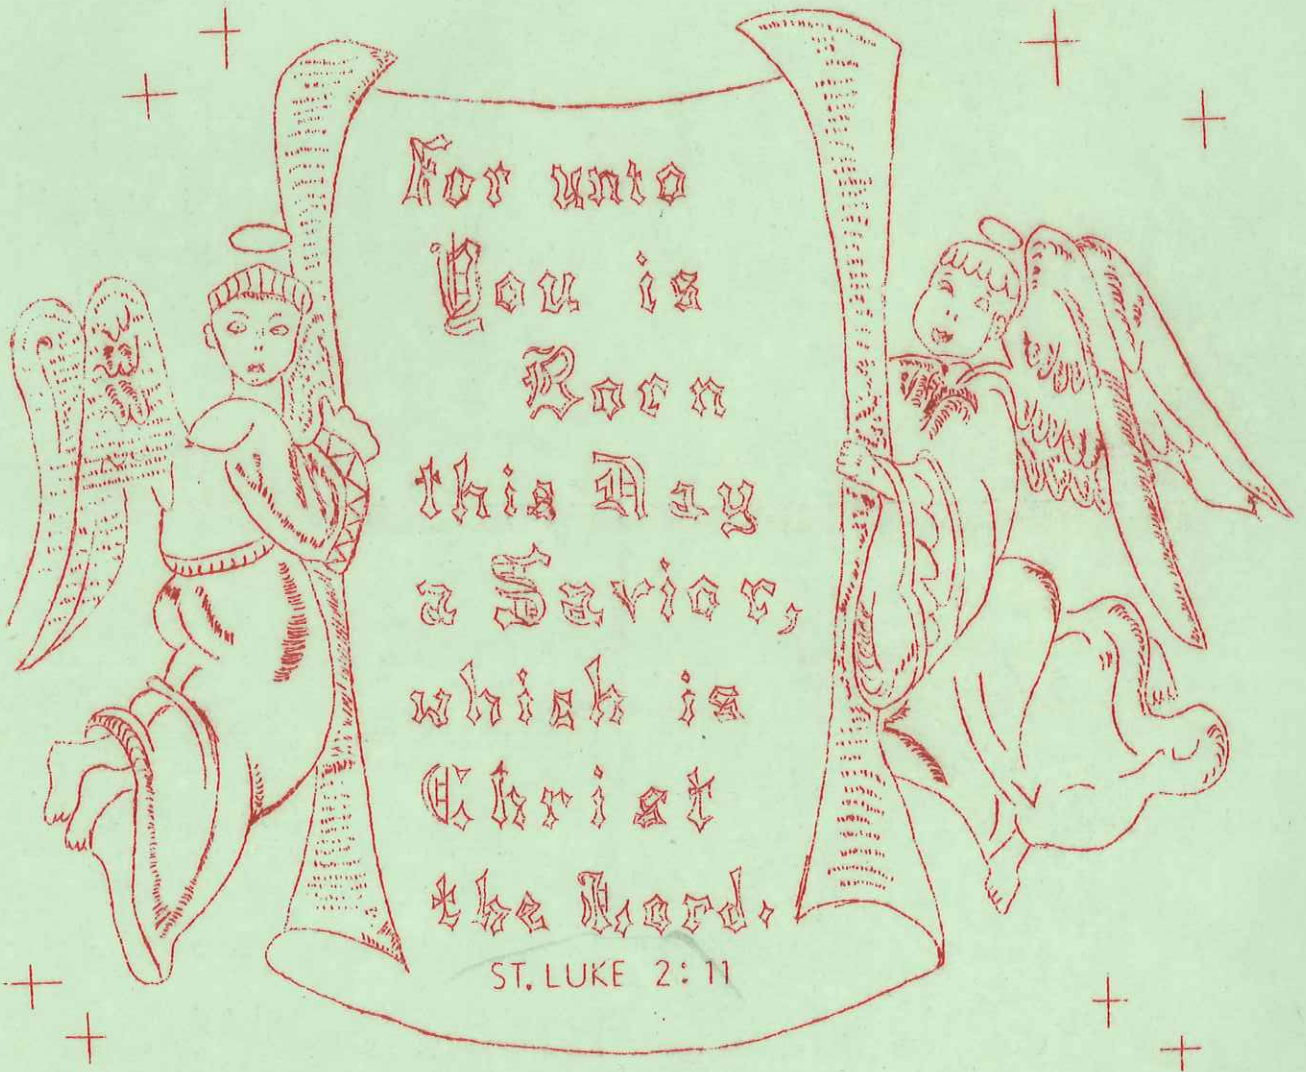 For unto
You is
Born
this Day
a Savior,
which is
Christ
the Lord.
ST. LUKE 2:11